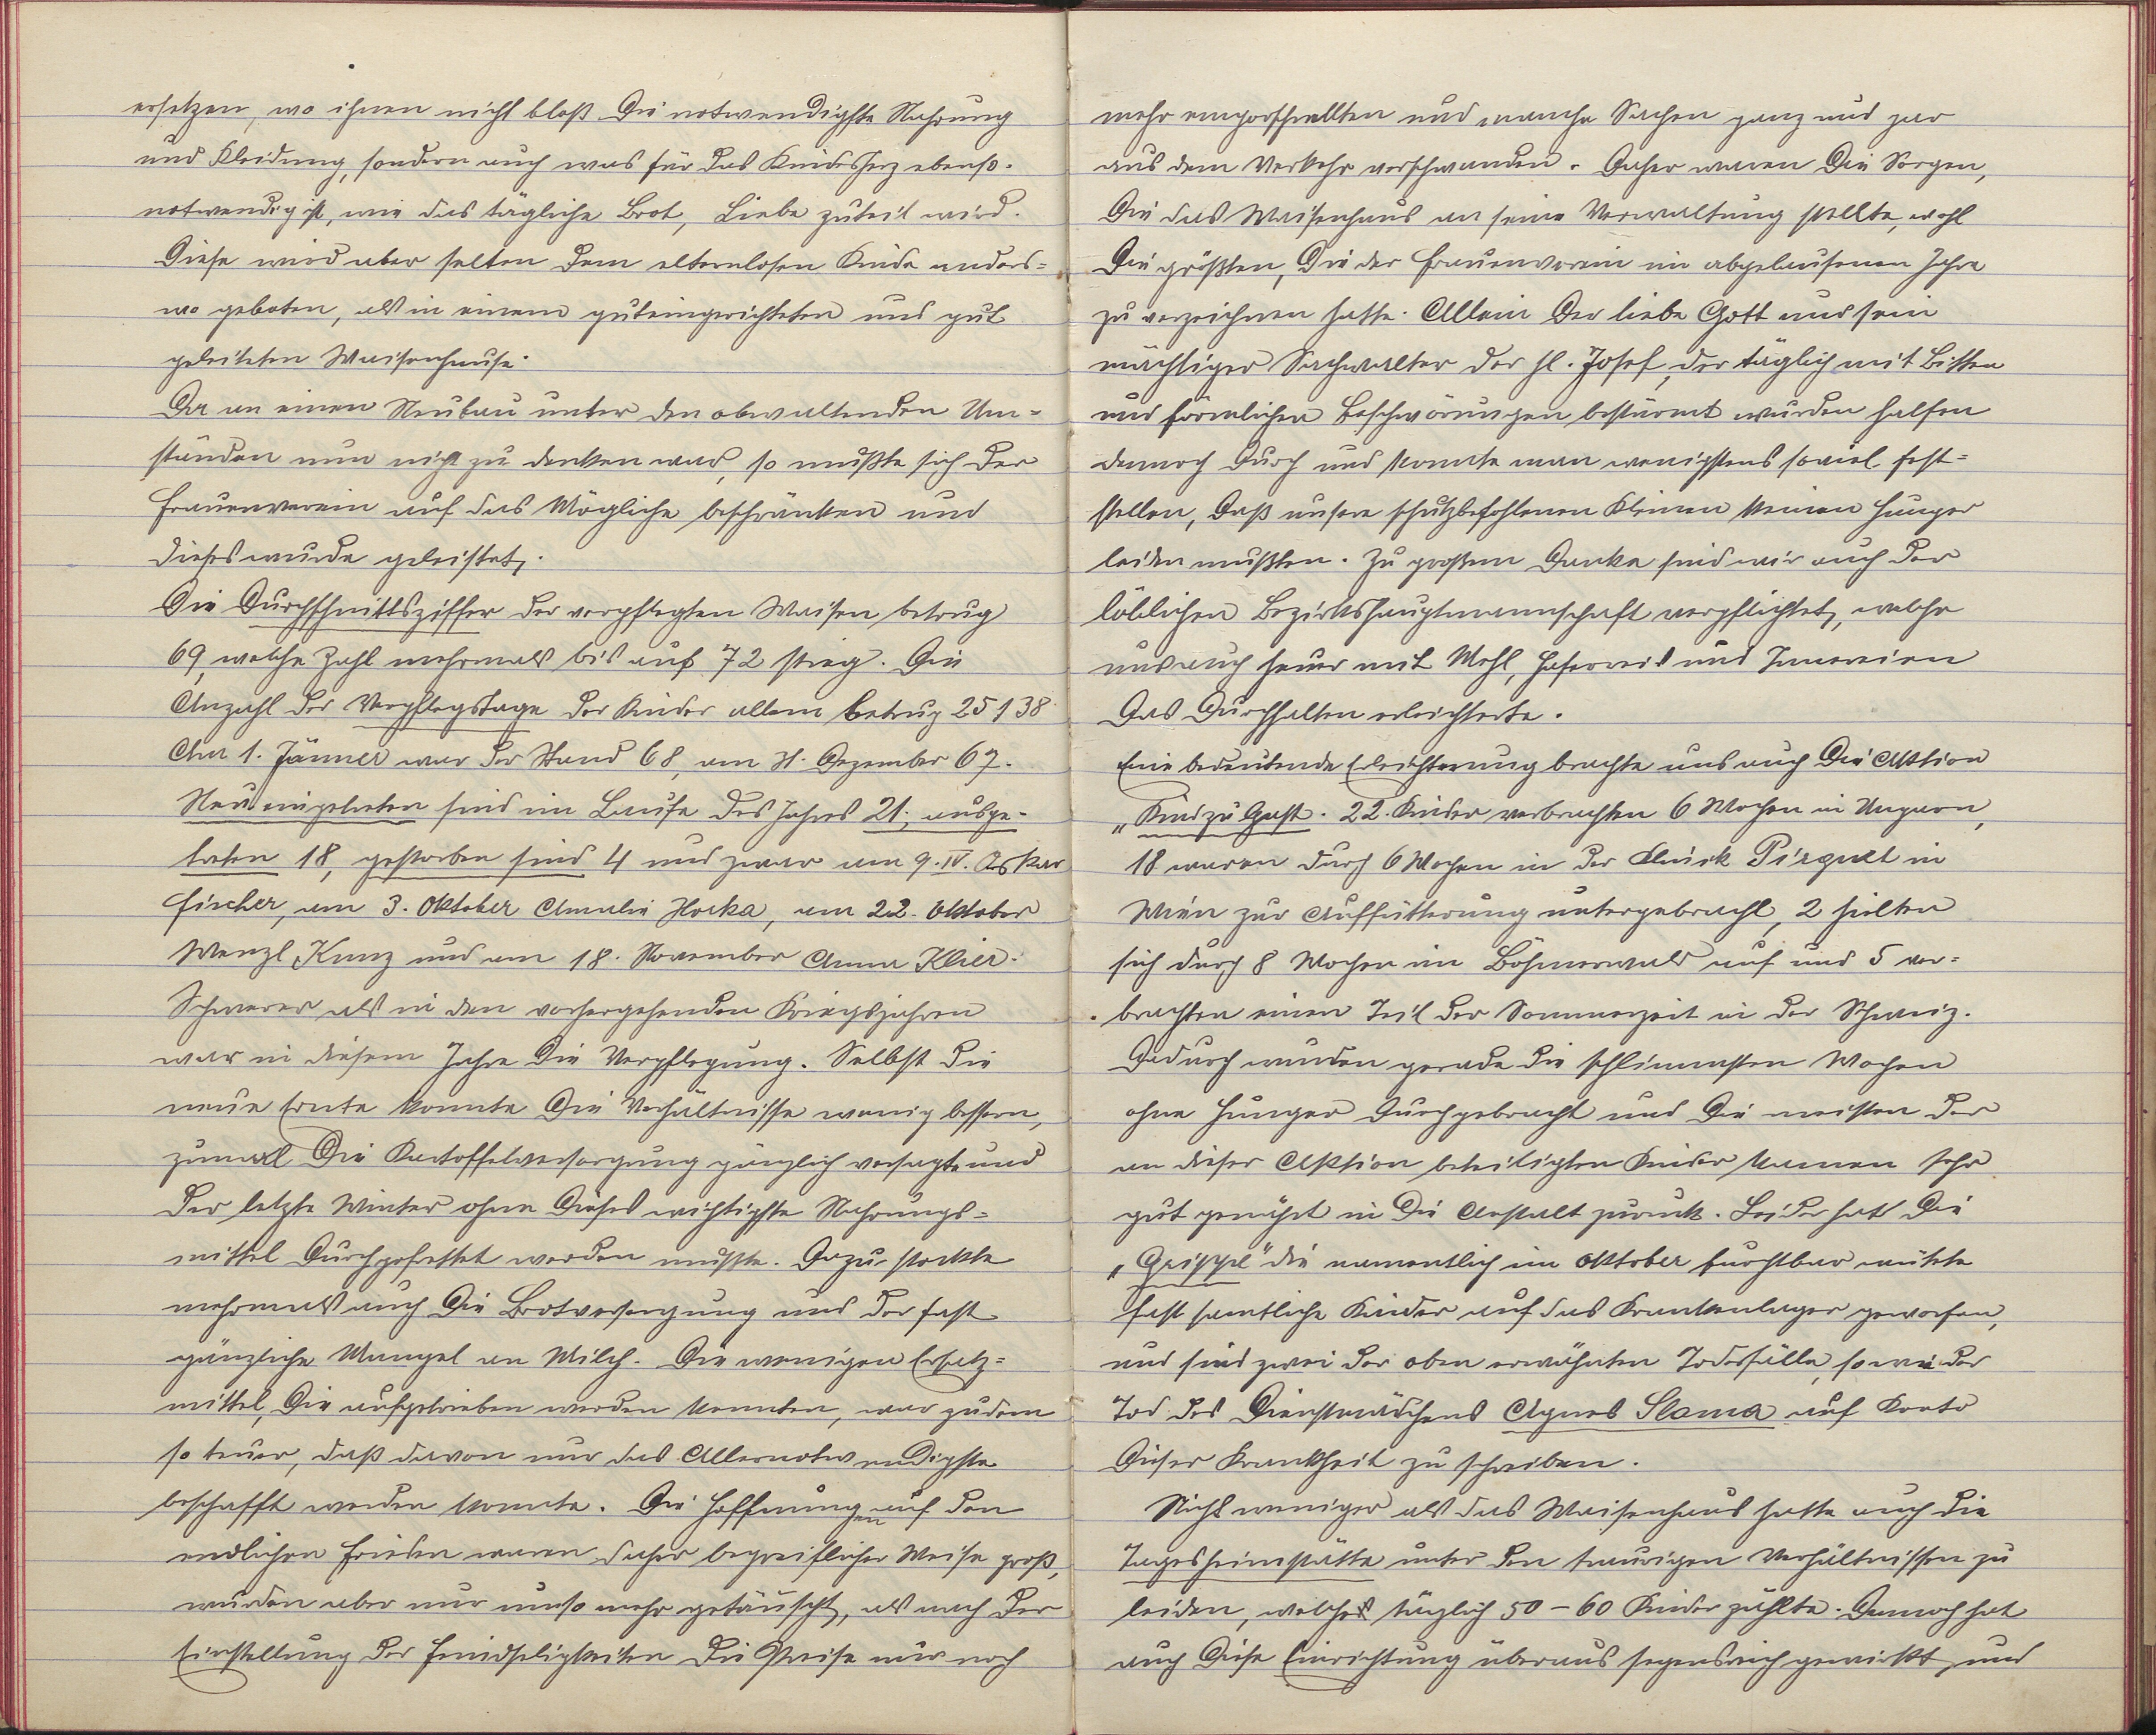 ersetzen, wo ihnen nicht bloß die notwendigste Nahrung
und Kleidung, sondern auch was für das Kindesherz ebenso
notwendig ist, wie das tägliche Brot, Liebe zuteil wird.
Diese wird aber selten dem elternlosen Kinde anders=
wo geboten, als in einem guteingerichteten und gut
geleiteten Waisenhause.
Da an einen Neubau unter den obwaltenden Um=
ständen nun nicht zu denken war, so mußte sich der
Frauenverein auf das Mögliche beschränken und
dieses wurde geleistet.
Die Durchschnittsziffer der verpflegten Waisen betrug
69, welche Zahl mehrmals bis auf 72 stieg. Die
Anzahl der Verpflegstage der Kinder allein betrug 25138
Am 1. Jänner war der Stand 68, am 31. Dezember 67.
Neu eingetreten sind im Laufe des Jahres 21, ausge-
treten 18, gestorben sind 4 und zwar am 9. IV. Oskar
Fischer, am 3. Oktober Amalie Horka, am 22. Oktober
Wenzl Kunz und am 18. November Anna Klier.
Schwerer als in den vorhergehenden Kriegsjahren
war in diesem Jahre die Verpflegung. Selbst die
neue Ernte konnte die Verhältnisse wenig bessern,
zumal die Kartoffelversorgung gänzlich versagte und
der letzte Winter ohne dieses wichtigste Nahrungs=
mittel durchgefrettet werden mußte. Dazu stockte
mehrmals auch die Brotversorgung und der fast
gänzliche Mangel an Milch. Die wenigen Ersatz=
mittel, die aufgetrieben werden konnten, war zudem
so teuer, daß davon nur das Allernotwendigste
beschafft werden konnte. Die Hoffnungen auf den
endlichen Frieden waren daher begreiflicher Weise groß,
wurden aber nur umso mehr getäuscht, als nach der
Einstellung der Feindseligkeiten die Preise nur noch
mehr emporschnellten und manche Sachen ganz und gar
aus dem Verkehr verschwanden. Daher waren die Sorgen,
die das Waisenhaus an seine Verwaltung stellte, wohl
die größten, die der Frauenverein im abgelaufenen Jahre
zu verzeichnen hatte. Allein der liebe Gott und sein
mächtiger Sachwalter der hl. Josef, der täglich mit Bitten
und förmlichen Beschwörungen bestürmt wurden halfen
dennoch durch und konnte man wenigstens soviel fest=
stellen, daß unsere schutzbefohlenen Kleinen keinen Hunger
leiden mußten. Zu großem Danke sind wir auch der
löblichen Bezirkshauptmannschaft verpflichtet, welche
uns auch heuer mit Mehl, Haferreis und Innereien
das Durchhalten erleichterte.
Eine bedeutende Erleichterung brachte uns auch die Aktion
„Kind zu Gast. 22 Kinder verbrachten 6 Wochen in Ungarn,
18 waren durch 6 Wochen in der Klinik Pirquet in
Wien zur Auffütterung untergebracht, 2 hielten
sich durch 8 Wochen im Böhmerwald auf und 5 ver=
brachten einen Teil der Sommerzeit in der Schweiz.
Dadurch wurden gerade die schlimmsten Wochen
ohne Hunger durchgebracht und die meisten der
an dieser Aktion beteiligten Kinder kamen sehr
gut genährt in die Anstalt zurück. Leider hat die
„Grippe“ die namentlich im Oktober furchtbar wütete
fast samtliche Kinder auf das Krankenlager geworfen,
und sind zwei der oben erwähnten Todesfälle, sowie der
Tod des Dienstmädchens Agnes Slama auf Konto
dieser Krankheit zu schreiben.
Nicht weniger als das Waisenhaus hatte auch die
Tagesheimstätte unter den traurigen Verhältnissen zu
leiden, welche täglich 50 – 60 Kinder zählte. Dennoch hat
auch diese Einrichtung überaus segensreich gewirkt, und